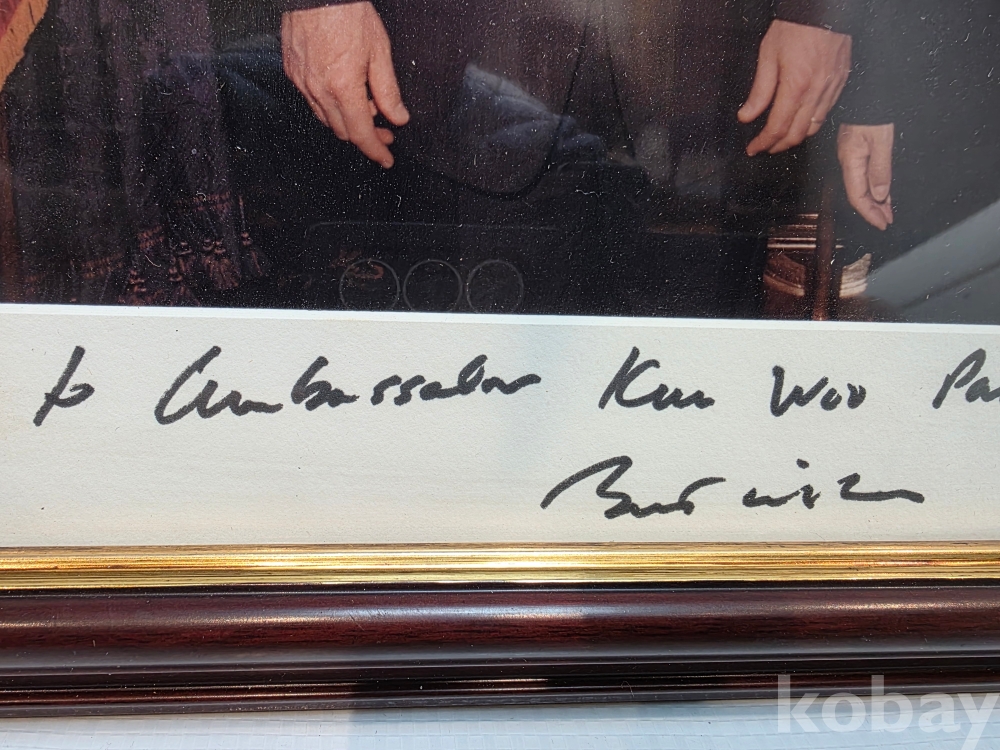 to Ambassador Kun Woo Pa
Best wishes
kobay